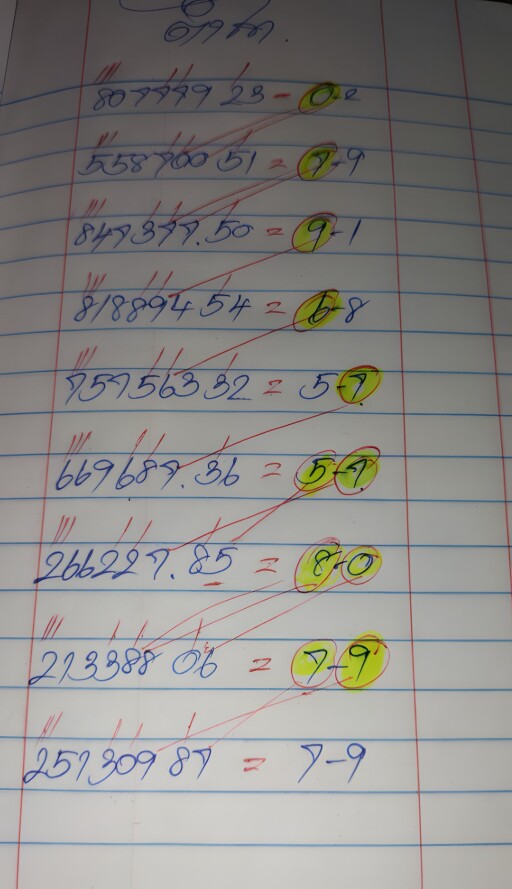 807779 23 - 0-2
558700 51 = 7-9
847377.50 = 9-1
818894 54 = 6-8
757563 32 = 5-7
669687.36 = 5-7
266227.85 = 8-0
273388 06 = 7-9
257309 87 = 7-9